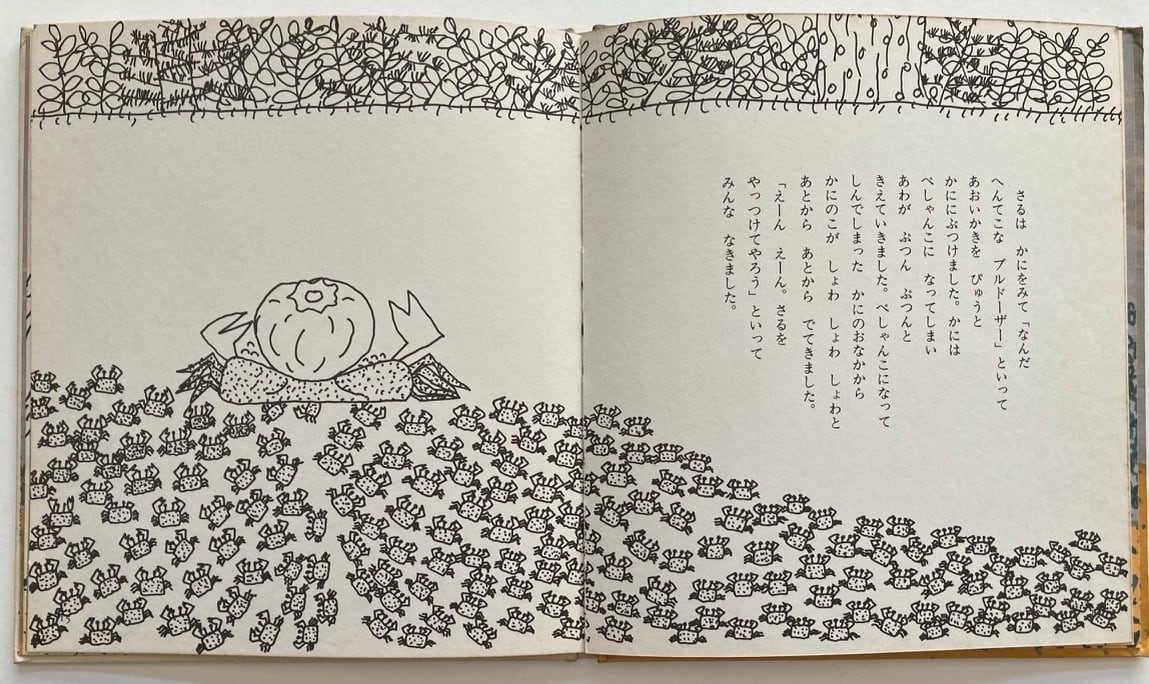 さるは　かにをみて「なんだ
へんてこな　ブルドーザー」といって
あおいかきを　ぴゅうと
かににぶつけました。かには
ぺしゃんこに　なってしまい
あわが　ぶつん　ぶつんと
きえていきました。ぺしゃんこになって
しんでしまった　かにのおなかから
かにのこが　しょわ　しょわ　しょわと
あとから　あとから　でてきました。
「えーん　えーん。さるを
やっつけてやろう」といって
みんな　なきました。